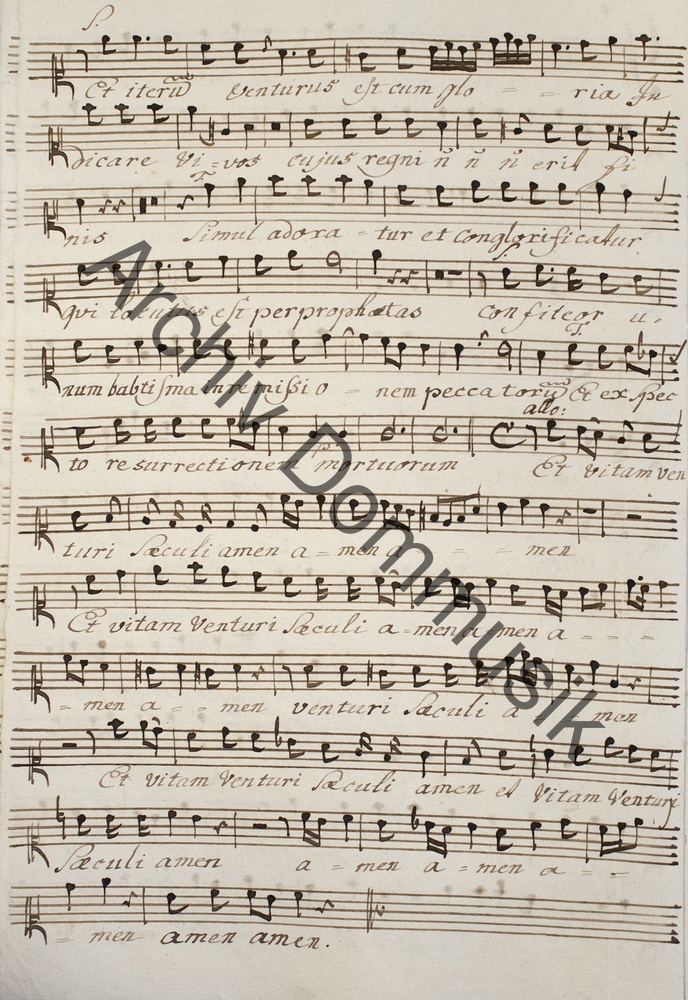 S.
Et iterum̅ Venturus est cum glo - - ria Ju
dicare vi=vos cujus regni n̄ n̄ n̄ erit fi
nis Simul adora - tur et Conglorificatur
qui locutus est per prophetas Confiteor u.
num babtisma in remissio - nem peccatorum̅ Et exspec
allo:
to resurrectionem mortuorum Et vitam ven
turi Sæculi amen a = men a - - - men
Et vitam Venturi Sæculi a = men a = men a - - -
= men a - = men venturi Sæculi a men
Et vitam Venturi Sæculi amen et Vitam Venturi
Sæculi amen a = men a = men a = -
= men amen amen.
Archiv Dommusik